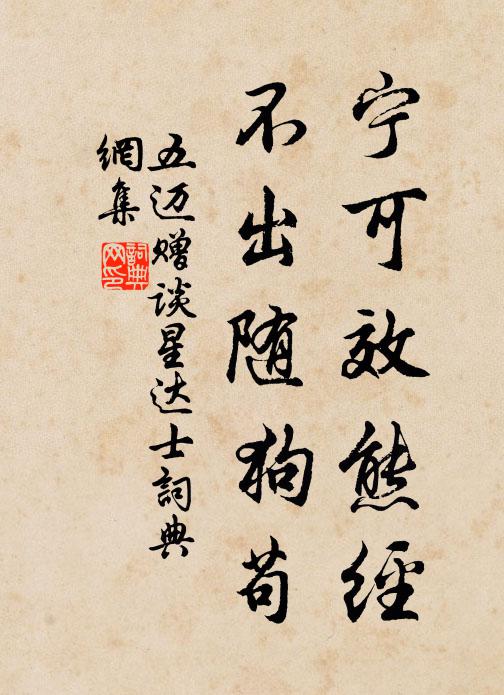 宁可效熊經
不出随狗苟
五迈赠谈星达士詞典
網集
詞典
网印